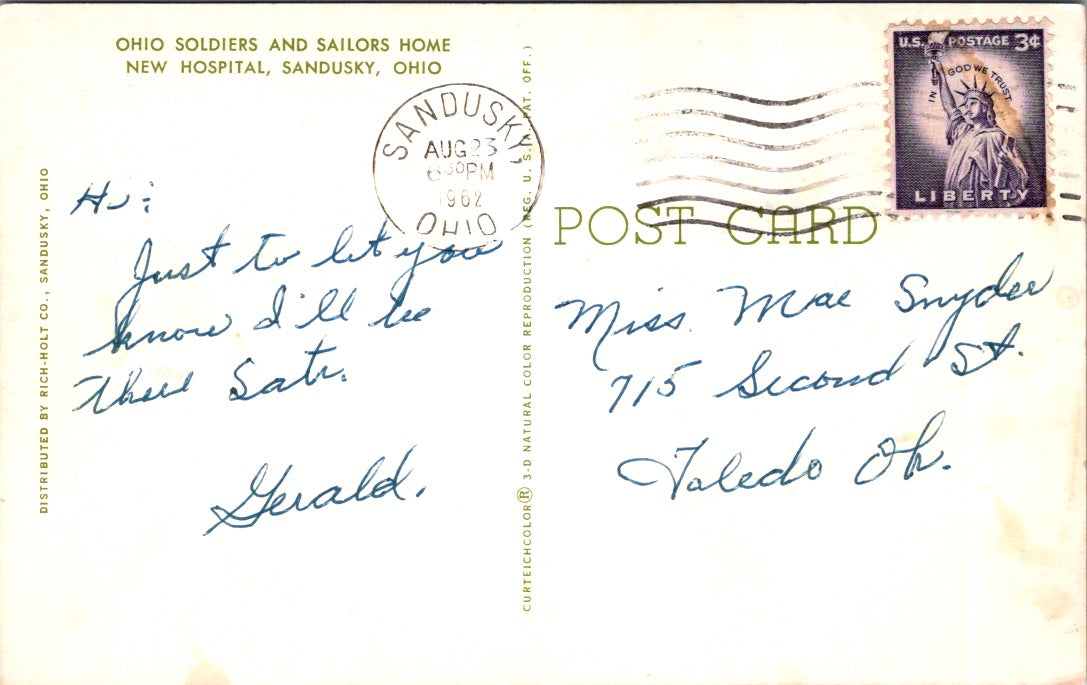 OHIO SOLDIERS AND SAILORS HOME
NEW HOSPITAL, SANDUSKY, OHIO
DISTRIBUTED BY RICH-HOLT CO., SANDUSKY, OHIO
SANDUSKY,
AUG 23
6 30 PM
1962
OHIO
U.S. POSTAGE 3¢
IN GOD WE TRUST
LIBERTY
POST CARD
CURTEICHCOLOR® 3-D NATURAL COLOR REPRODUCTION (REG. U. S. A. PAT. OFF.)
Hi:
Just to let you
know I'll be
there Satr.
Gerald.
Miss. Mae Snyder
715 Second St.
Toledo Oh.